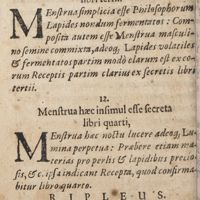 MEnstrua simplicia esse Philosophorum
Lapides nondum fermentatos : Com-
posita autem esse Menstrua masculi-
no semine commixta, adeoq; Lapides volatiles
& fermentatos partim modò clarum est ex co-
rum Receptis partim clarius ex secretis libri
tertii.
12.
Menstrua hæc insimul esse secreta
libri quarti,
MEnstrua hæc noctu lucere adeoq; Lu-
mina perpetua : Præbere etiam ma-
terias pro perlis & lapidibus precio-
sis, & c. ipsa indicant Recepta, quod confirma-
bitur libro quarto.
RIPLEUS.